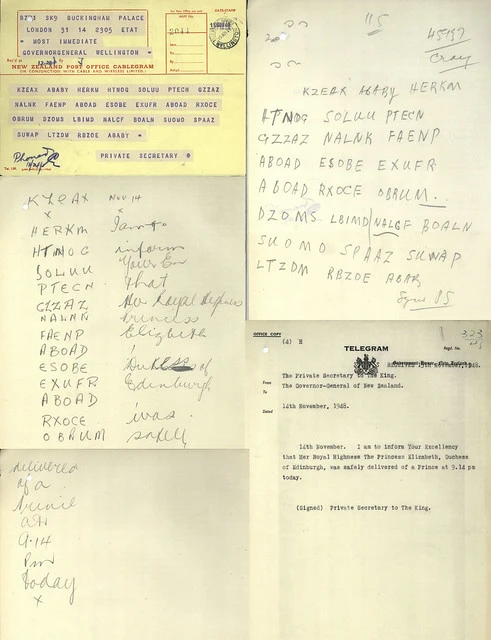 BZ01 SK9 BUCKINGHAM PALACE
LONDON 31 14 2305 ETAT
* MOST IMMEDIATE
GOVERNORGENERAL WELLINGTON *
NEW ZEALAND POST OFFICE CABLEGRAM
(IN CONJUNCTION WITH CABLE AND WIRELESS LIMITED.)
KZEAX ABABY HERKM HTNOQ SOLUU PTECH GZZAZ
NALNK FAENP ABOAD ESOBE EXUFR ABOAD RXOCE
OBRUM DZOMS LBIMD NALCF BOALN SUOMO SPAAZ
SUWAP LTZDM RBZOE ABABY *
PRIVATE SECRETARY
Phoned
115
45197
KZEAX ABABY HERKM
HTNOG SOLUU PTECN
GZZAZ NALNK FAENP
ABOAD ESOBE EXUFR
ABOAD RXOCE OBRUM
DZOMS LBIMD NALGF BOALN
SUOMO SPAAZ SUWAP
LTZDM RBZOE ABAB
KZEAX Nov 14
x
HERKM I am to
HTNOG inform
SOLUU Your Ex
PTECN that
GZZAZ Her Royal Highness
NALNK Princess
FAENP Elizabeth
ABOAD ,
ESOBE Duchess of
EXUFR Edinburgh
ABOAD ,
RXOCE was
OBRUM safely
delivered
of a
Prince
at
9.14
Pm
today
x
OFFICE COPY
(4) H
TELEGRAM
323
Regd. No.
RECEIVED 15th November, 1948.
From
The Private Secretary to The King.
To
The Governor-General of New Zealand.
Dated
14th November, 1948.
14th November. I am to inform Your Excellency
that Her Royal Highness The Princess Elizabeth, Duchess
of Edinburgh, was safely delivered of a Prince at 9.14 pm
today.
(Signed) Private Secretary to The King.